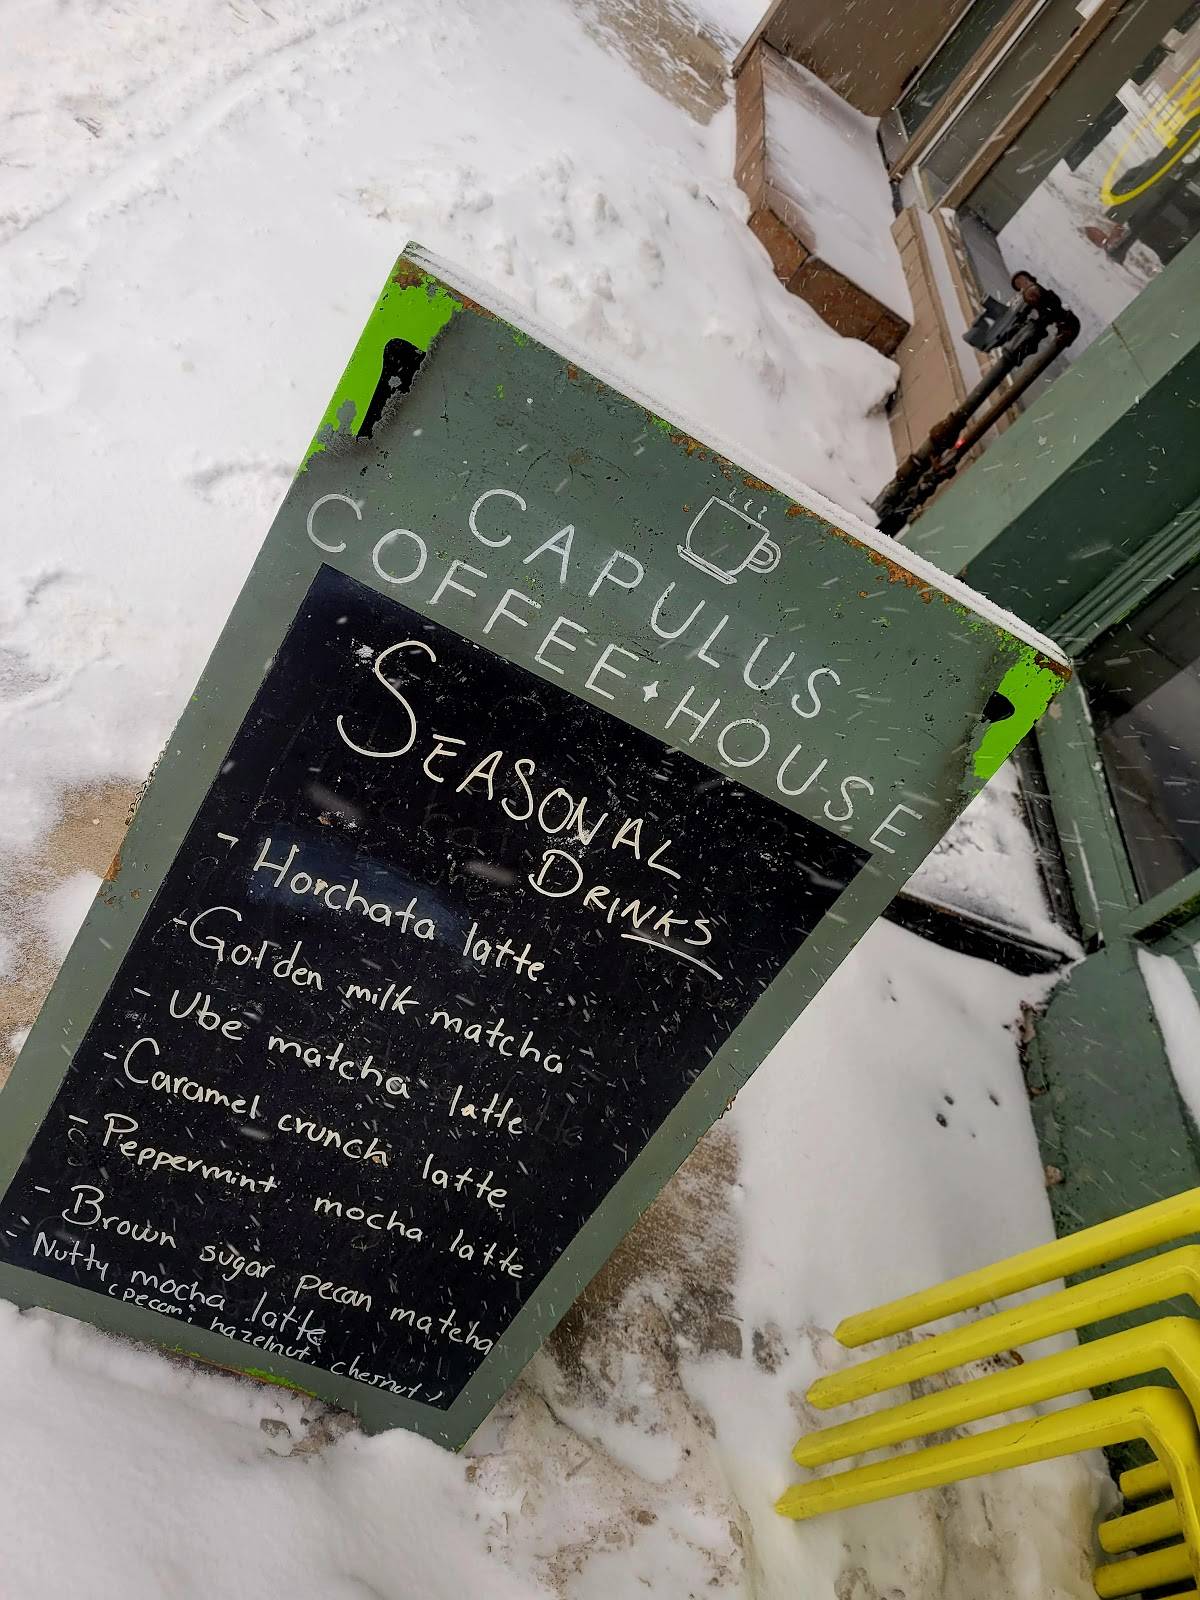 CAPULUS
COFFEE HOUSE
SEASONAL
DRINKS
- Horchata latte
- Golden milk matcha
- Ube matcha latte
- Caramel crunch latte
- Peppermint mocha latte
- Brown sugar pecan matcha
- Nutty mocha latte
(pecan, hazelnut, chesnut)